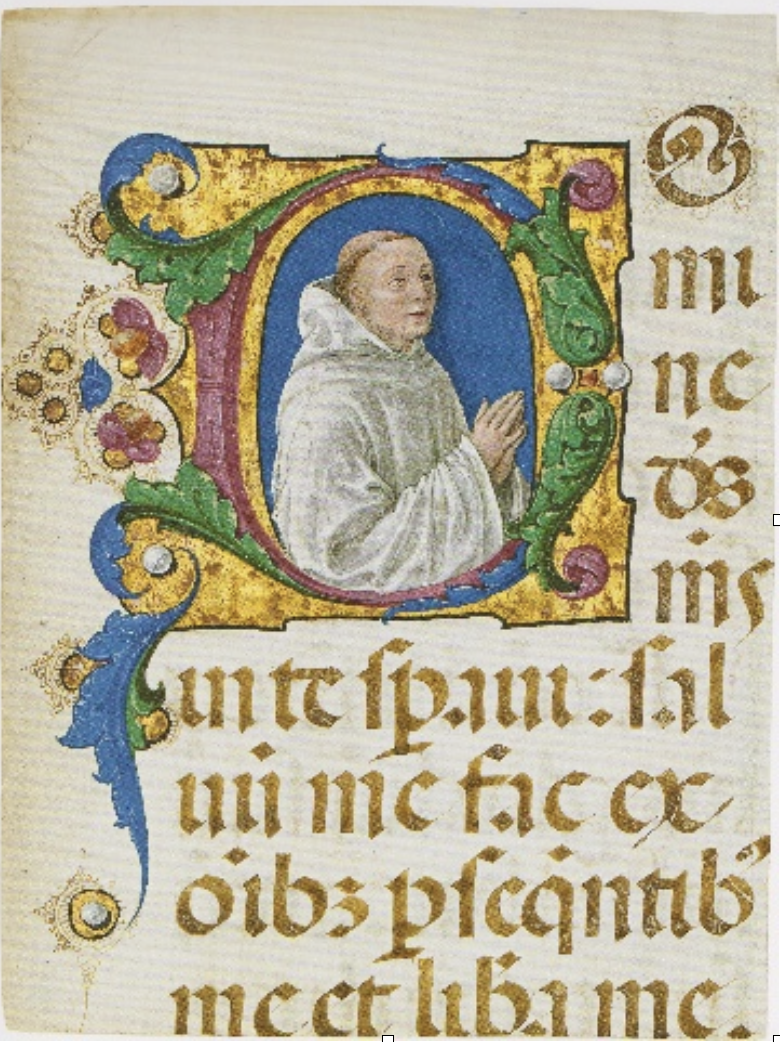 DO
mi
ne
ds̄
m̄s
in te sp̄aui : sal
uū me fac ex
oībꝫ ꝑseq̇ntibꝰ
me et lib̄a me.